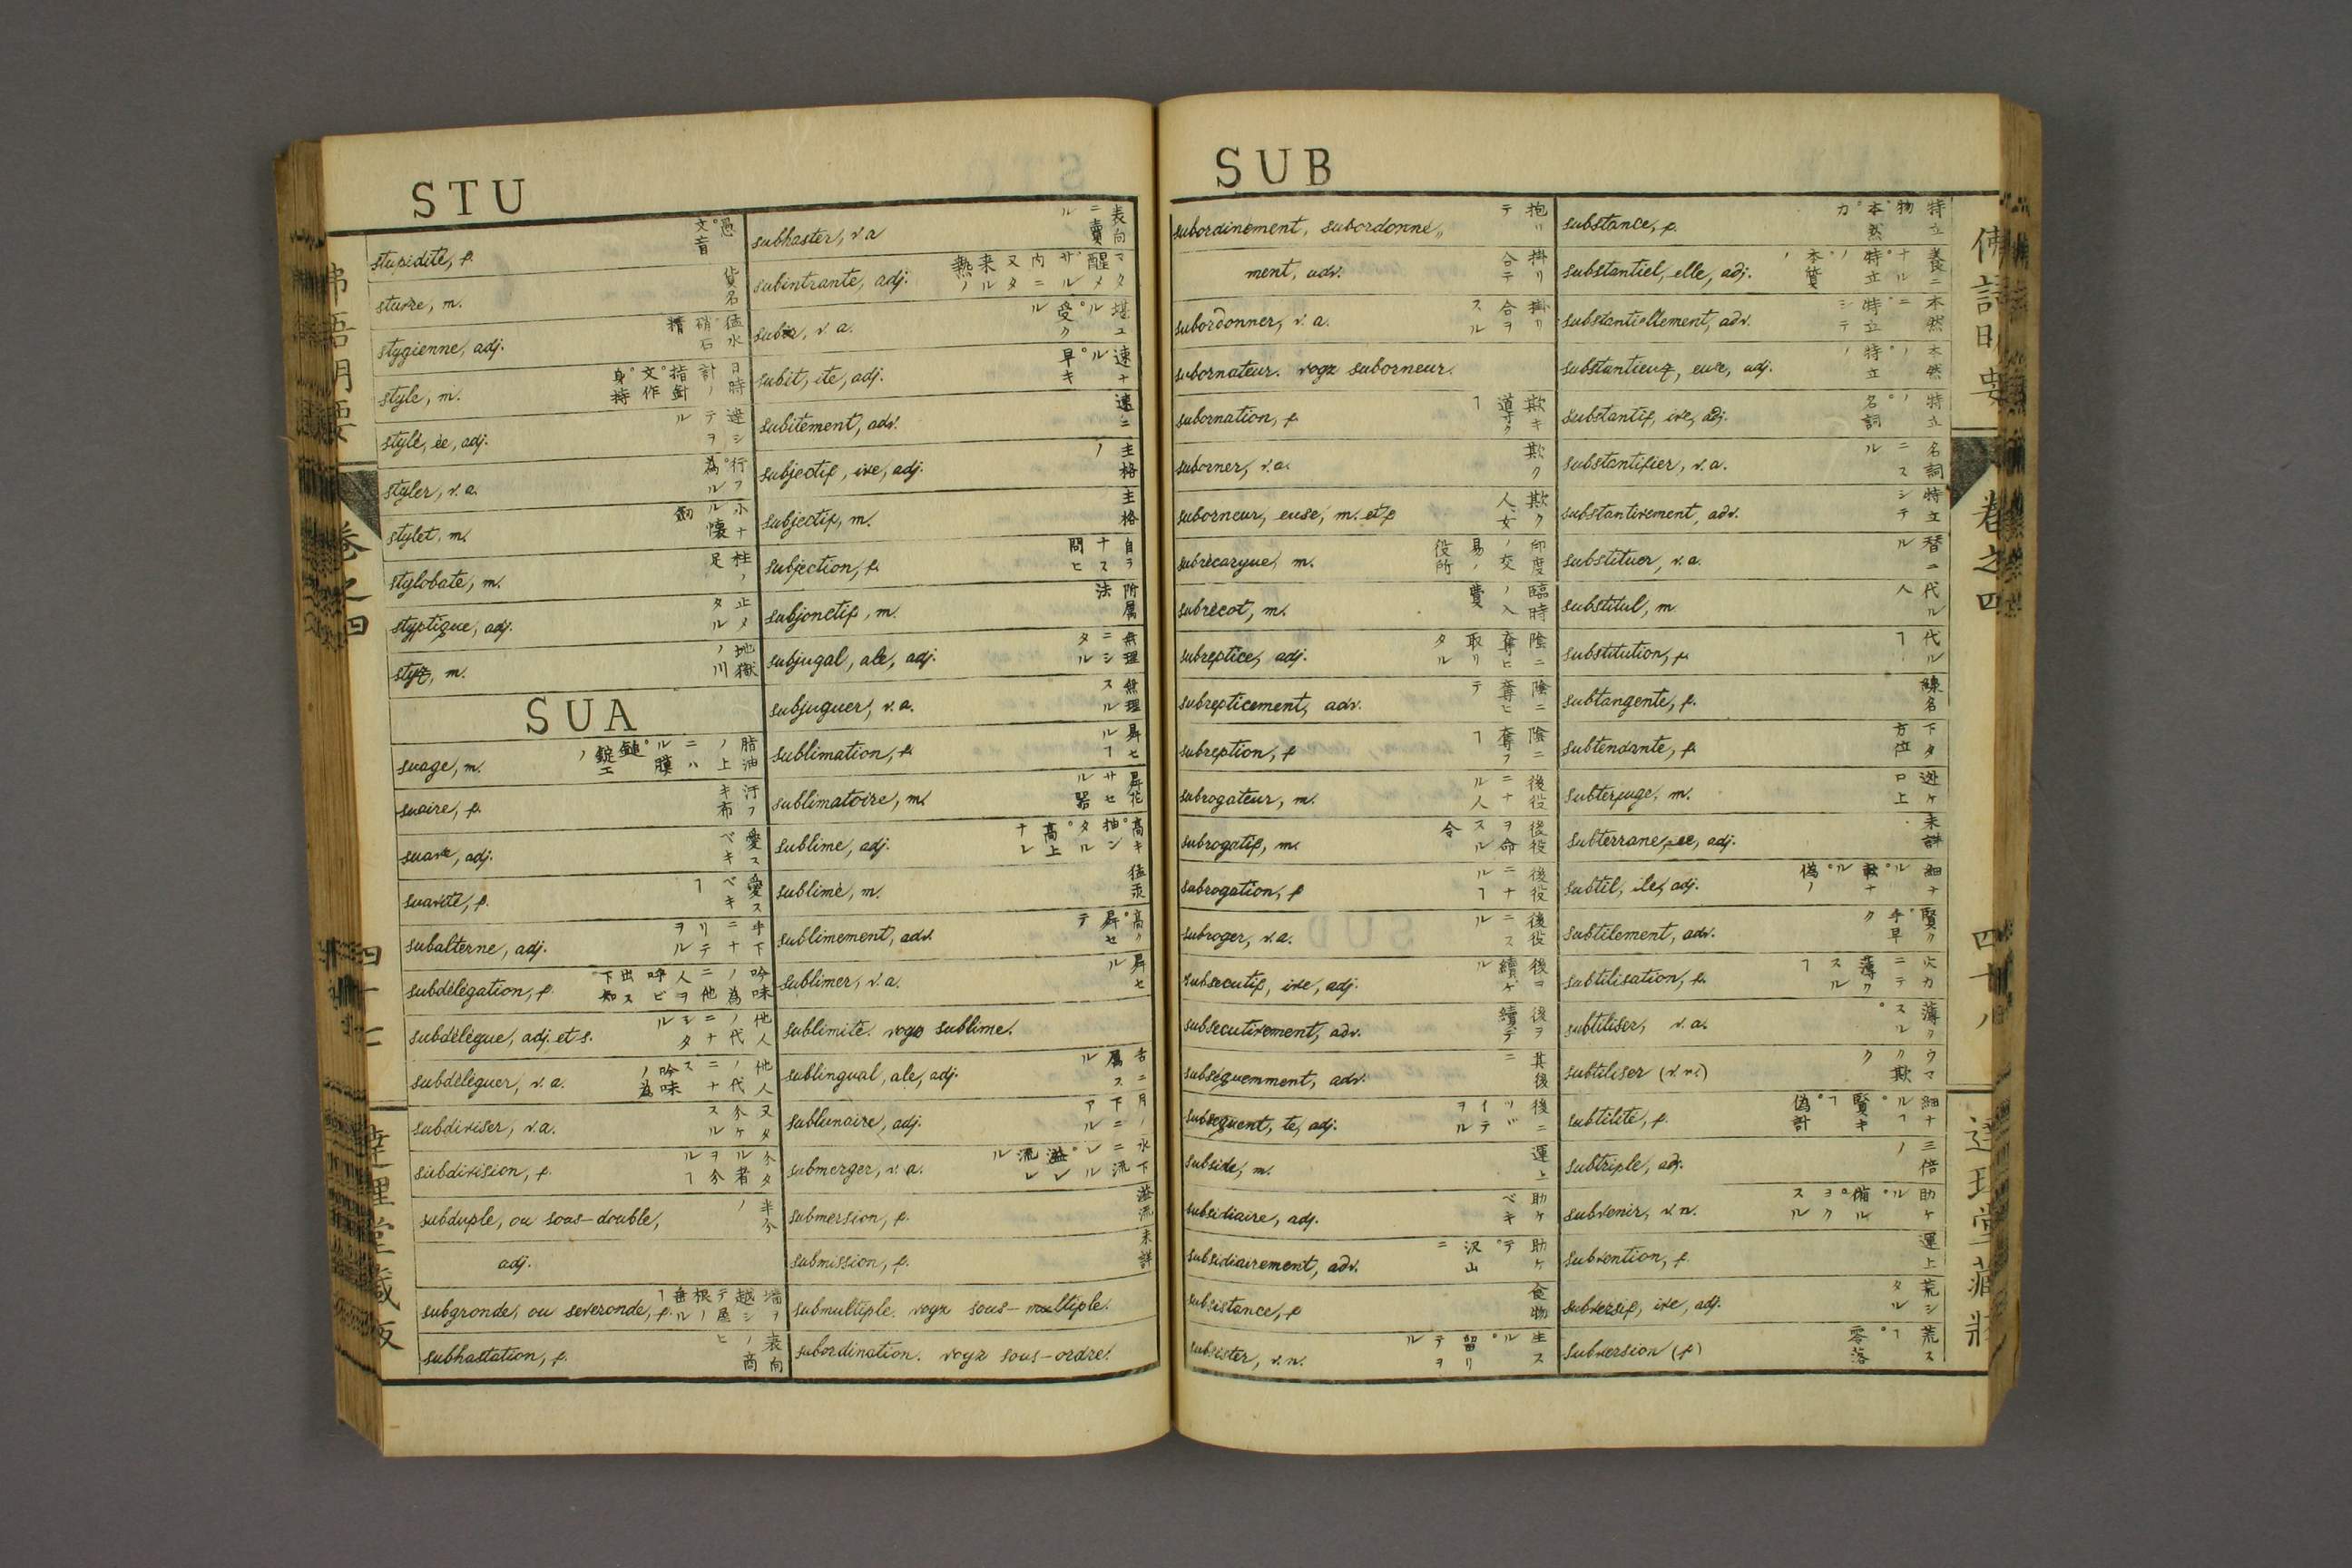 STU
stupidité, f. 愚°文盲
sture, m. 貨名
stygienne, adj. 猛水°硝石精
style, m. 日時計ノ指針°文作°身持
stylé, ée, adj.
styler, v. a. 行フ°為ル
stylet, m. 小ナル懐劔
stylobate, m. 柱ノ足
styptique, adj. 止メタル
styx, m. 地獄ノ川
SUA
suage, m.
suaire, f. 汗フキ布
suave, adj. 愛スベキ
suavité, f. 愛スベキヿ
subalterne, adj. 手下ニナリテヲル
subdélégation, f. 吟味ノ為ニ他人ヲ呼ビ出ス下知
subdélégué, adj. et s.
subdéléguer, v. a.
subdiviser, v. a. 又タ分ケスル
subdivision, f.
subduple, ou sous-double, adj. 半分ノ
subgronde, ou severonde, f.
subhastation, f. 表向ノ商ヒ
subhaster, v. a 表向ニ賣ル
subintrante, adj. マタ醒メザル内ニ又タ来ルノ熱
subir, v. a. 堪ユル°受ク
subit, ite, adj. 速ナル°早キ
subitement, adv. 速ニ
subjectif, ive, adj. 主格ノ
subjectif, m. 主格
subjection, f. 自ラナス問ヒ
subjonctif, m. 附属法
subjugal, ale, adj. 無理ニシタル
subjuguer, v. a. 無理スル
sublimation, f. 昇セルヿ
sublimatoire, m. 昇花サセル器
sublime, adj.
sublimé, m. 猛汞
sublimement, adv. 高ク°昇セテ
sublimer, v. a. 昇セル
sublimité. voyz sublime.
sublingual, ale, adj. 舌ニ属スル
sublunaire, adj. 月ノ下ニアル
submerger, v. a.
submersion, f. 溢流
submission, f. 未詳
submultiple. voyz sous-multiple.
subordination. voyz sous-ordre.
SUB
subordinément, subordonné„ment, adv. 抱リテ 掛リ合テ
subordonner, v. a. 掛リ合ヲスル
subornateur. voyz suborneur.
subornation, f 欺キ道ヲクヿ
suborner, v. a. 欺ク
suborneur, euse, m. et f 欺ク人、女
subrécargue, m. 印度ノ交易ノ役所
subrécot, m. 臨時ノ入費
subreptice, adj. 陰ニ奪ヒ取リタル
subrepticement, adv. 陰ニ奪ヒテ
subreption, f 陰ニ奪フヿ
subrogateur, m. 後役ニナル人
subrogatif, m. 後役ヲ命スル令
subrogation, f 後役ニナルヿ
subroger, v. a. 後役ニスル
subsécutif, ive, adj.
subsécutivement, adv. 後ヲ續デ
subséquemment, adv. 其後ニ
subséquent, te, adj. 後ニツヾイテヲル
subside, m. 運上
subsidiaire, adj. 助ケベキ
subsidiairement, adv. 助ケテ°沢山ニ
subsistance, f 食物
subsister, v. n. 生スル°留リテヲル
substance, f. 特立物°本然°カ
substantiel, elle, adj.
substantiellement, adv. 本然ニ°特立シテ
substantieux, euse, adj. 本然ノ°特立ノ
substantif, ive, adj. 特立ノ°名詞
substantifier, v. a. 名詞ニスル
substantivement, adv. 特立シテ
substituer, v. a. 替ニル
substitut, m 代ル人
substitution, f. 代ルヿ
subtangente, f. 線名
subtendante, f. 下タ方位
subterfuge, m. 迯ケ口上
subterrané, ée, adj. 未詳
subtil, ile, adj. 細ナル°軟ナル°偽ノ
subtilement, adv. 賢ク°手早ク
subtilisation, f. 火カニテ薄クスルヿ
subtiliser, v. a. 薄クスル°
subtiliser (v. n.) ウマクク欺ク
subtilité, f. 細ナルヿ°賢キヿ°偽計
subtriple, adj. 三倍ノ
subvenir, v. n.
subvention, f. 運上
subversif, ive, adj. 荒シタル
subversion (f) 荒スヿ°零落
佛語明要
卷之四
四十七
達理堂藏版
佛語明要
卷之四
四十八
達理堂藏版